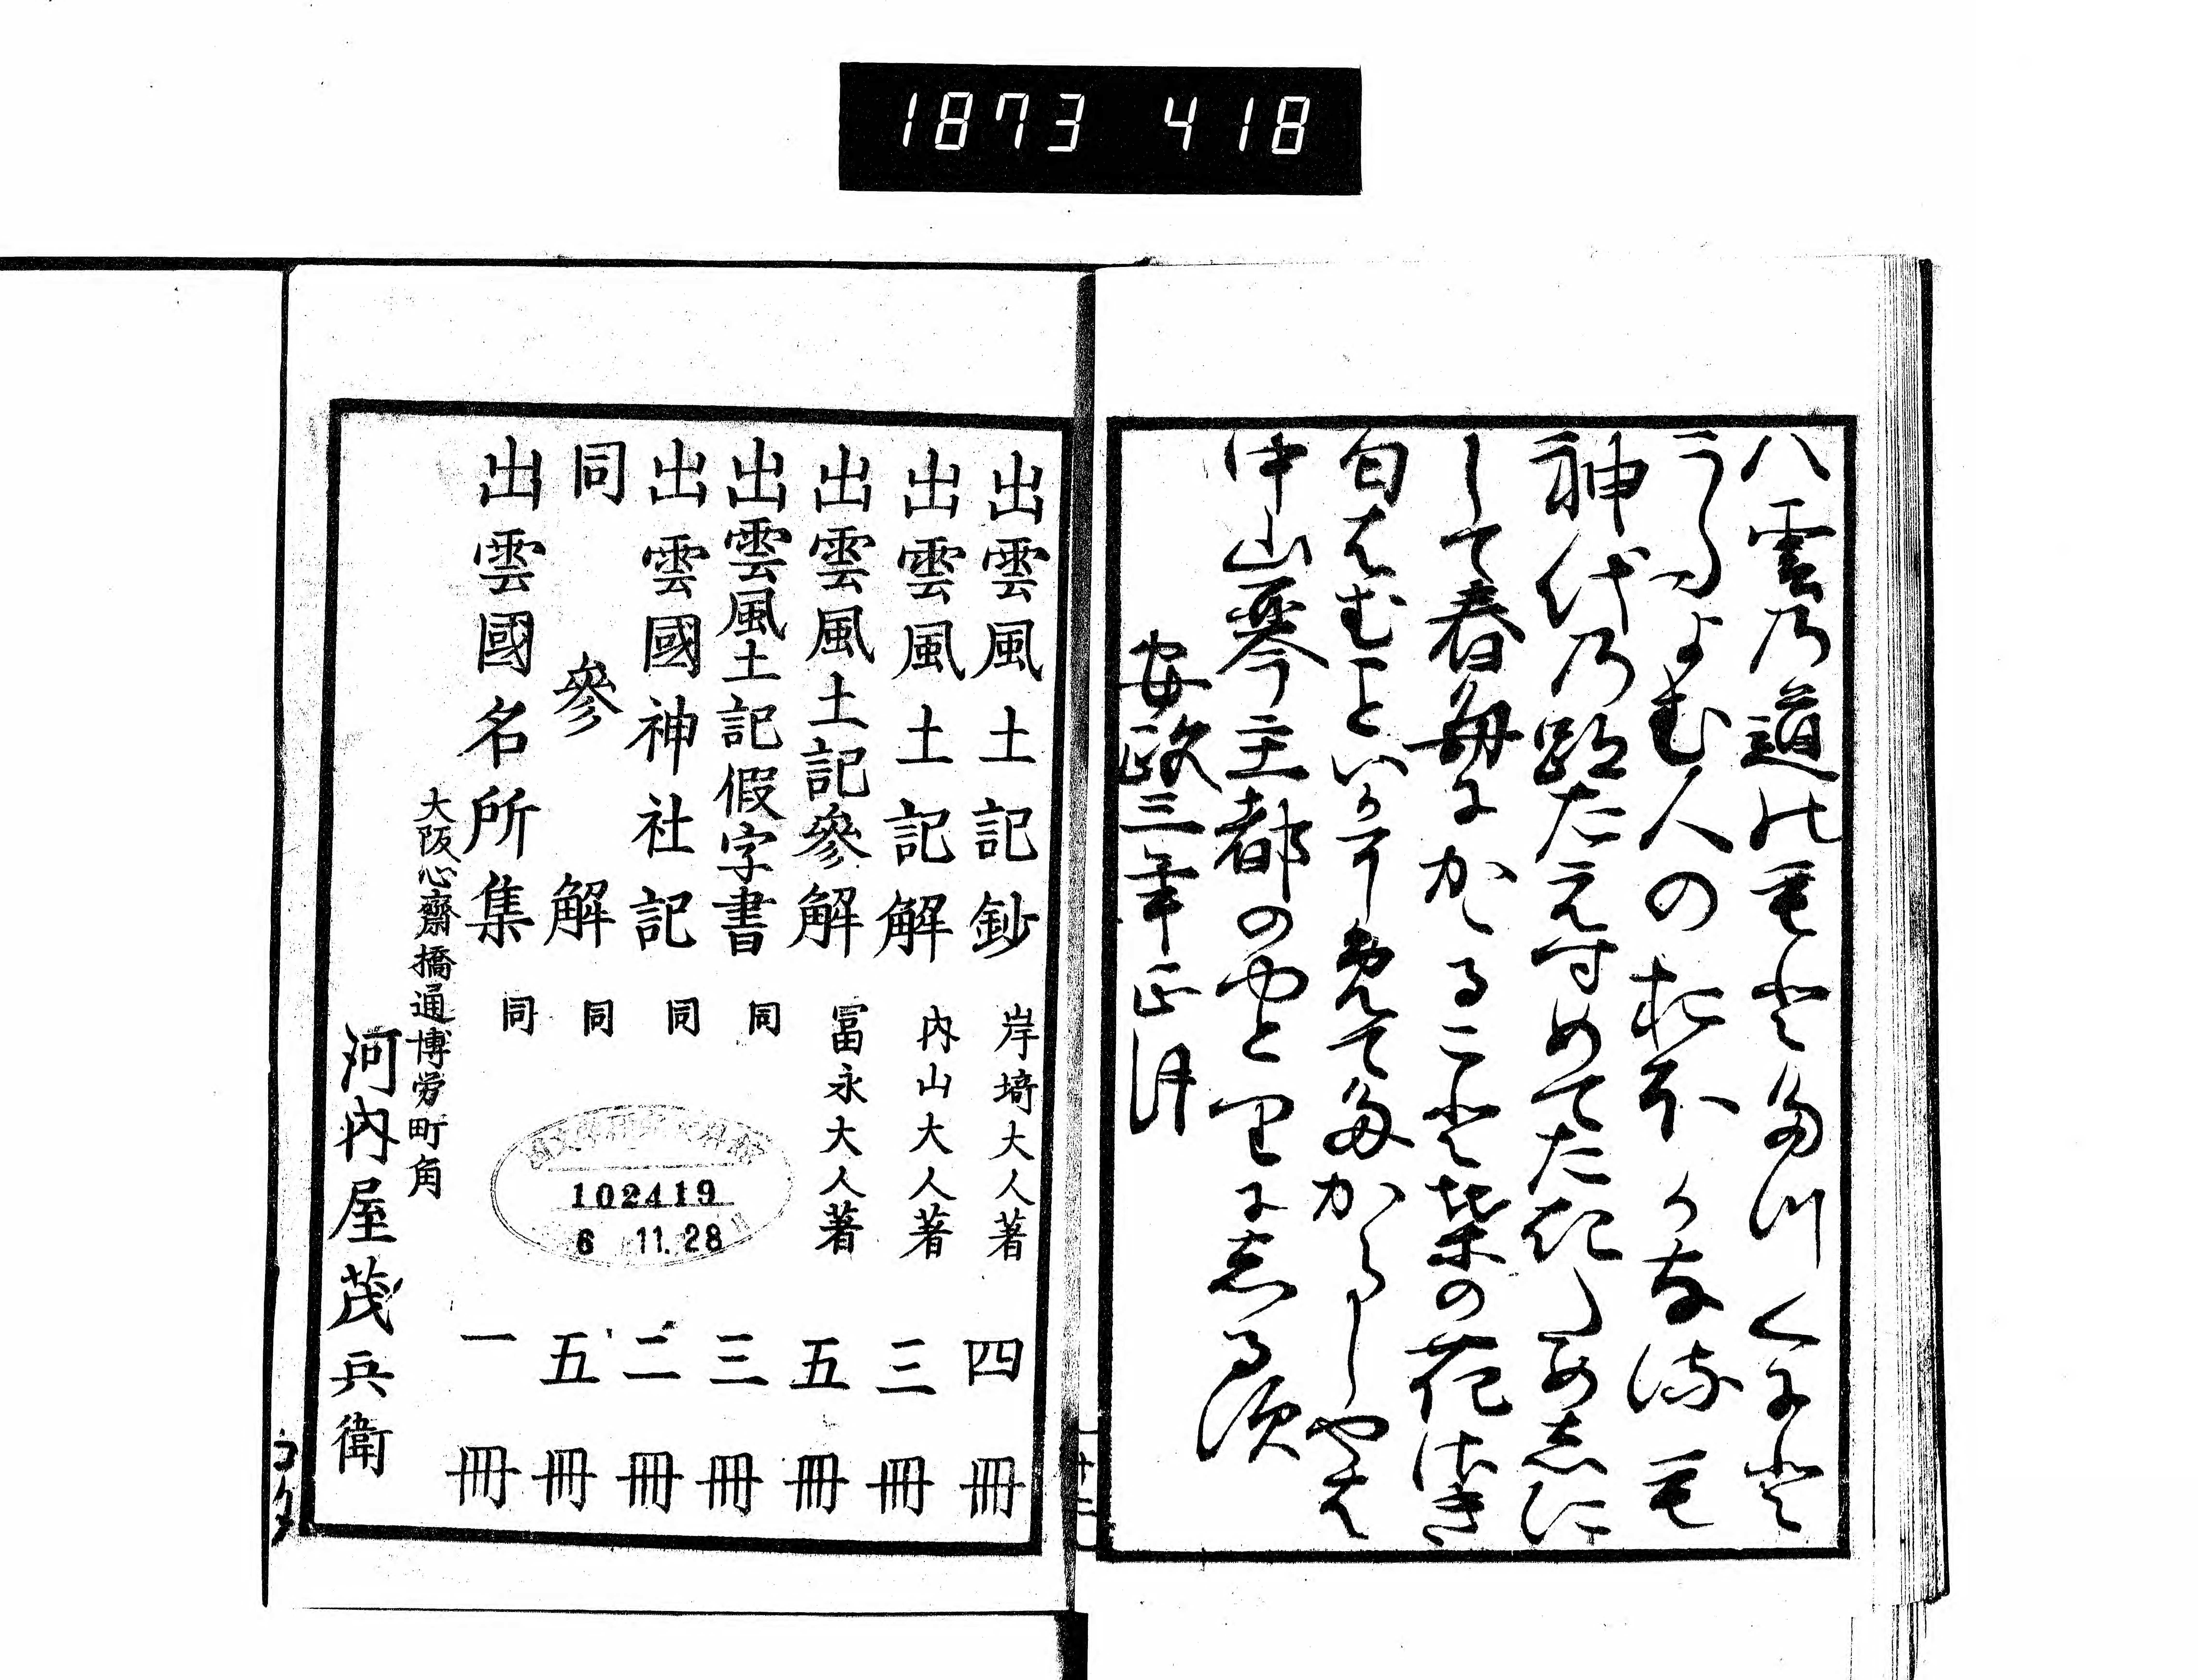 1873 418
八雲乃道能毛登多川くに尓登
うたよむ人の於本可奈流毛
神代乃跡たえ寸めてたきためしに
して春毎にかゝること柴の花さき
匂はむこといか免て多からしやは
中山琴主都のやとりに志る須
安政三年正月
出雲風土記鈔 岸埼大人著 四冊
出雲風土記解 内山大人著 三冊
出雲風土記參解 冨永大人著 五冊
出雲風土記假字書 同 三冊
出雲國神社記 同 二冊
同 參解 同 五冊
出雲國名所集 同 一冊
大阪心齋橋通博労町角
河内屋茂兵衛
102419
6 11.28